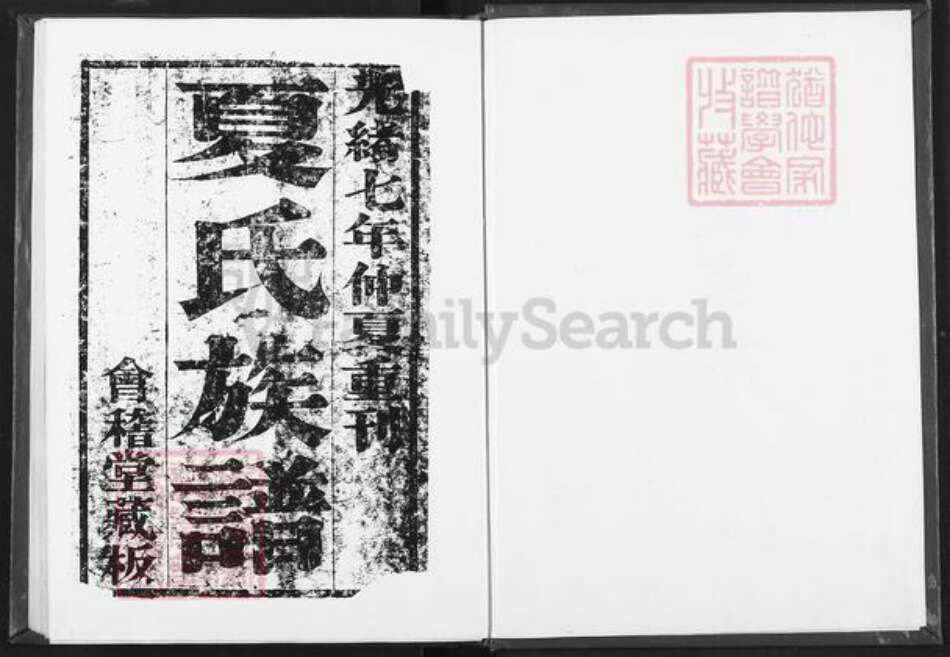 光緒七年仲夏重刊
夏氏族譜
會稽堂藏板
猶他家
譜學會
收藏
FamilySearch